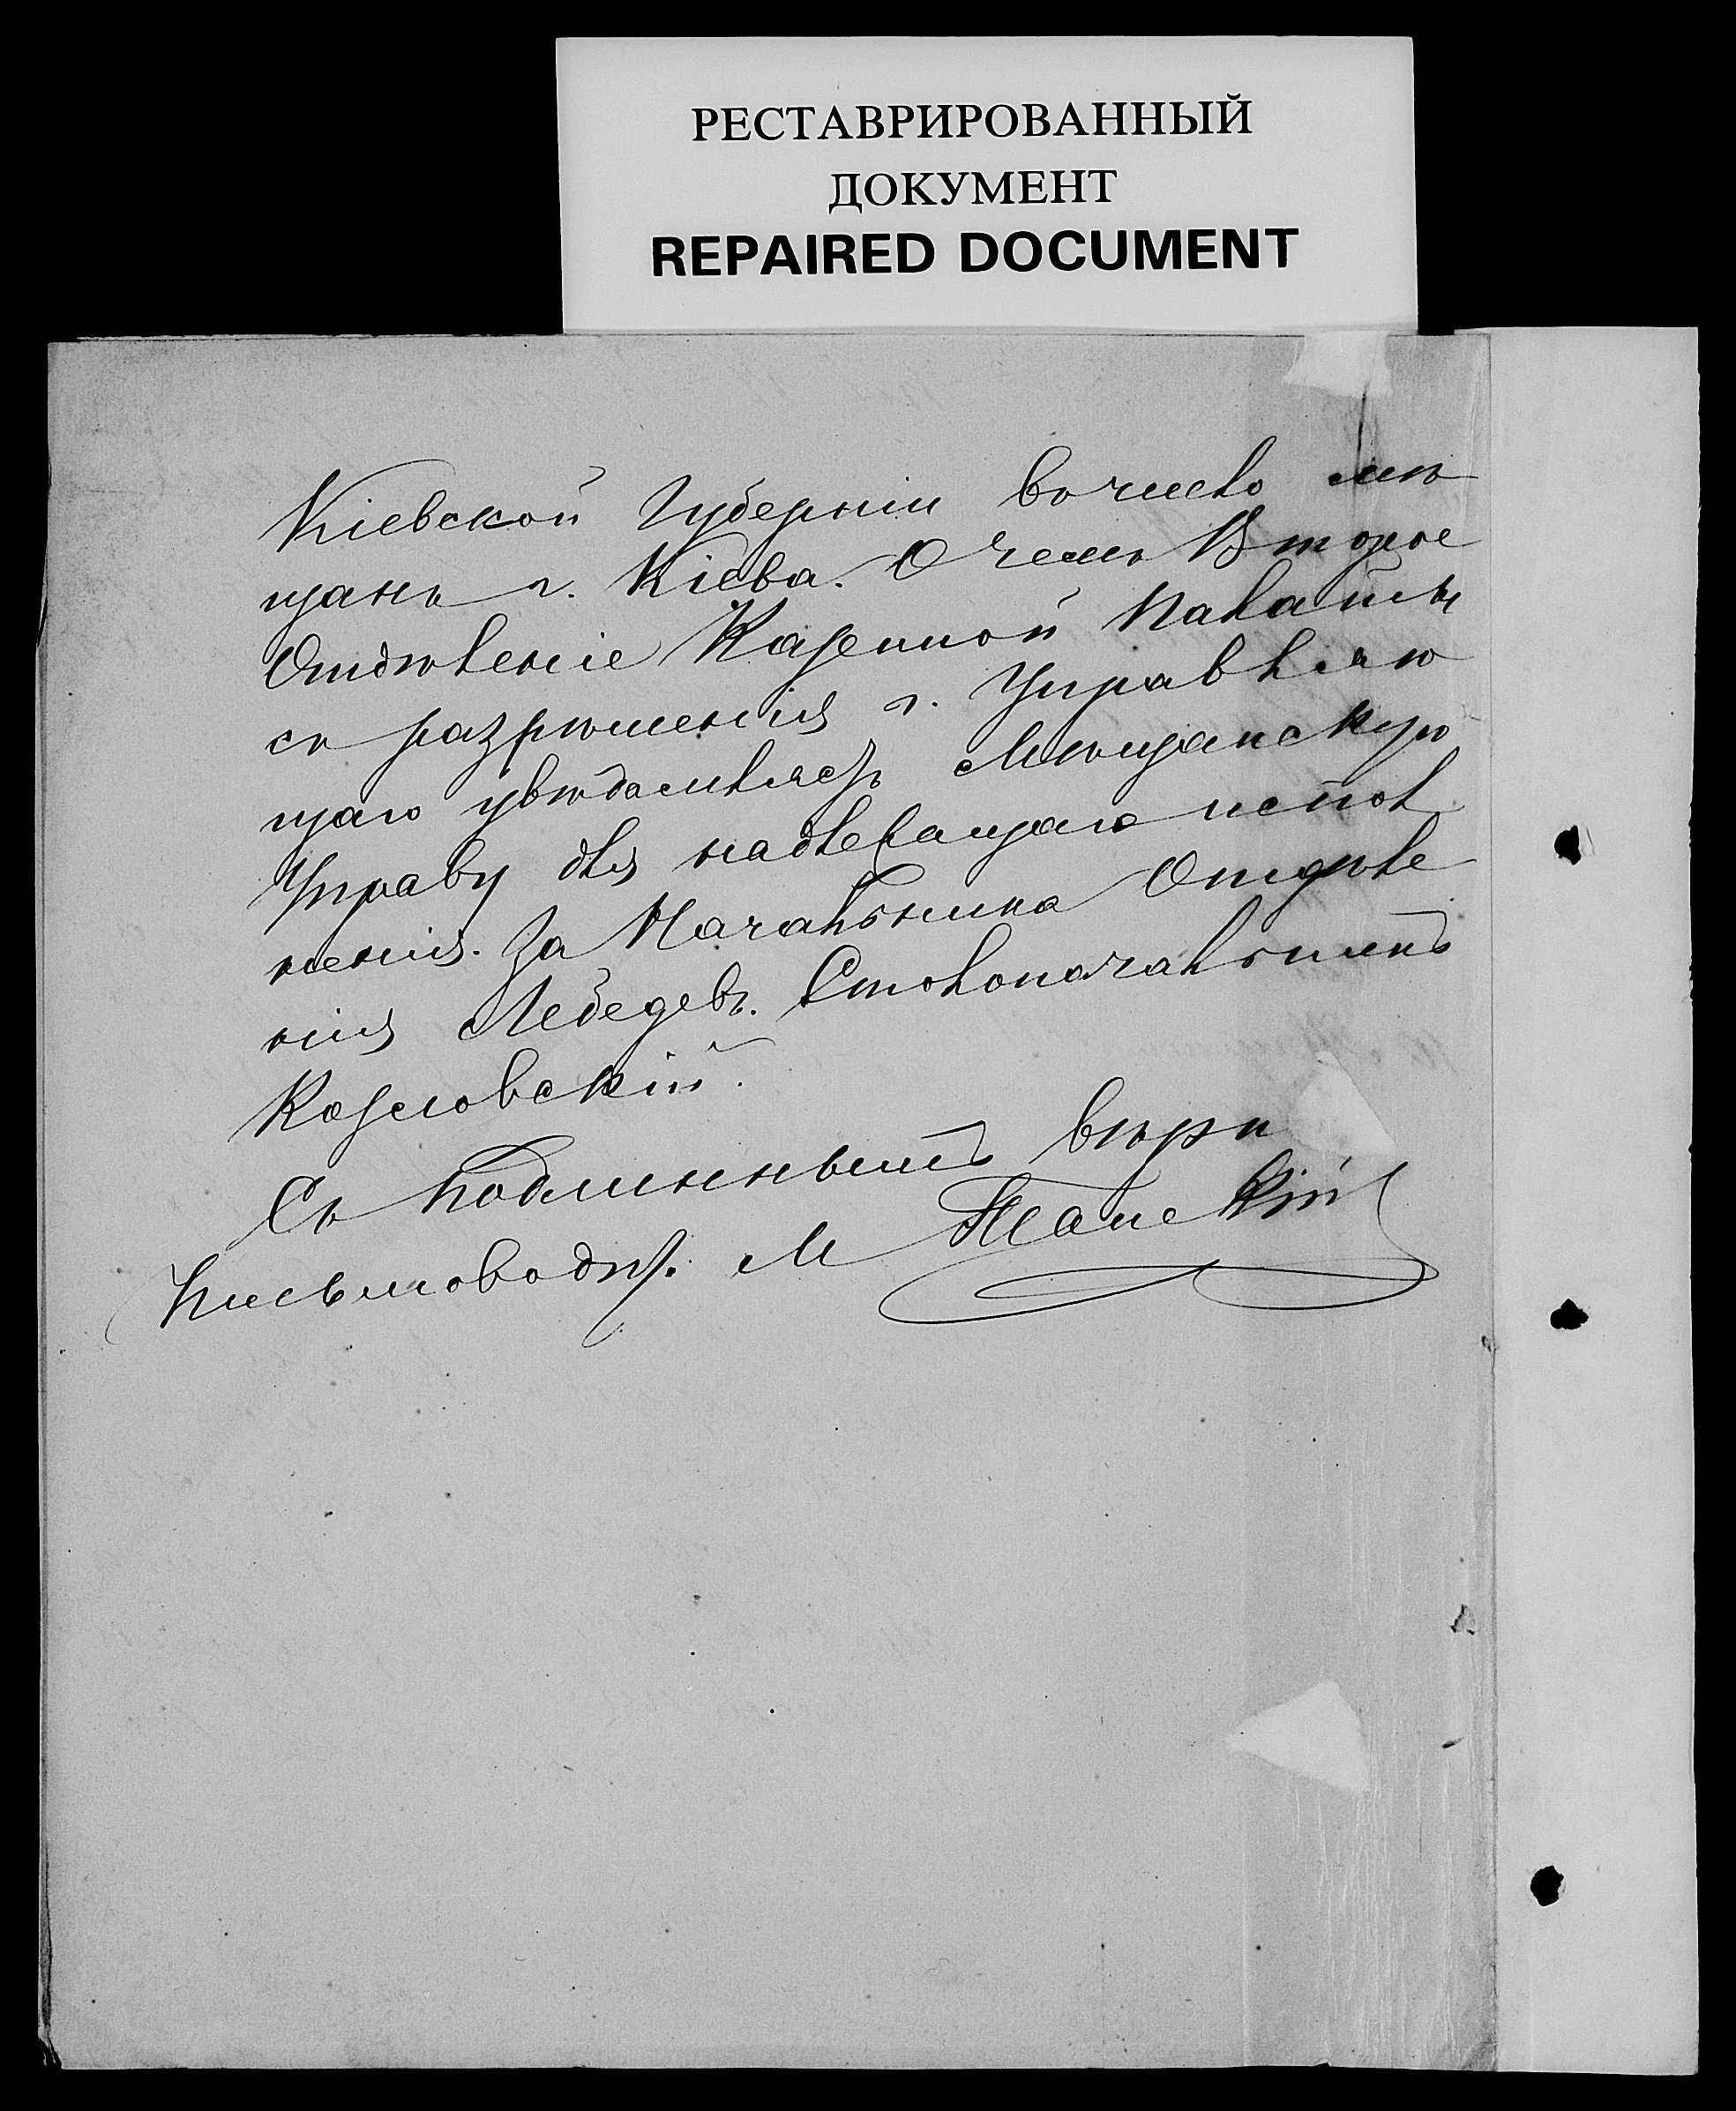 РЕСТАВРИРОВАННЫЙ
ДОКУМЕНТ
REPAIRED DOCUMENT
Кіевской Губерніи въ число мѣ
щанъ г. Кіева. О чемъ Второе
Отдѣленіе Казенной Палаты
съ разрѣшенія г. Управляю
щаго увѣдомляетъ Мѣщанскую
Управу для надлежащаго испол
ненія. За Начальника Отдѣле
нія Лебедевъ. Столоначальникъ
Козловскій.
Съ подлиннымъ вѣрн
Письмоводит. М